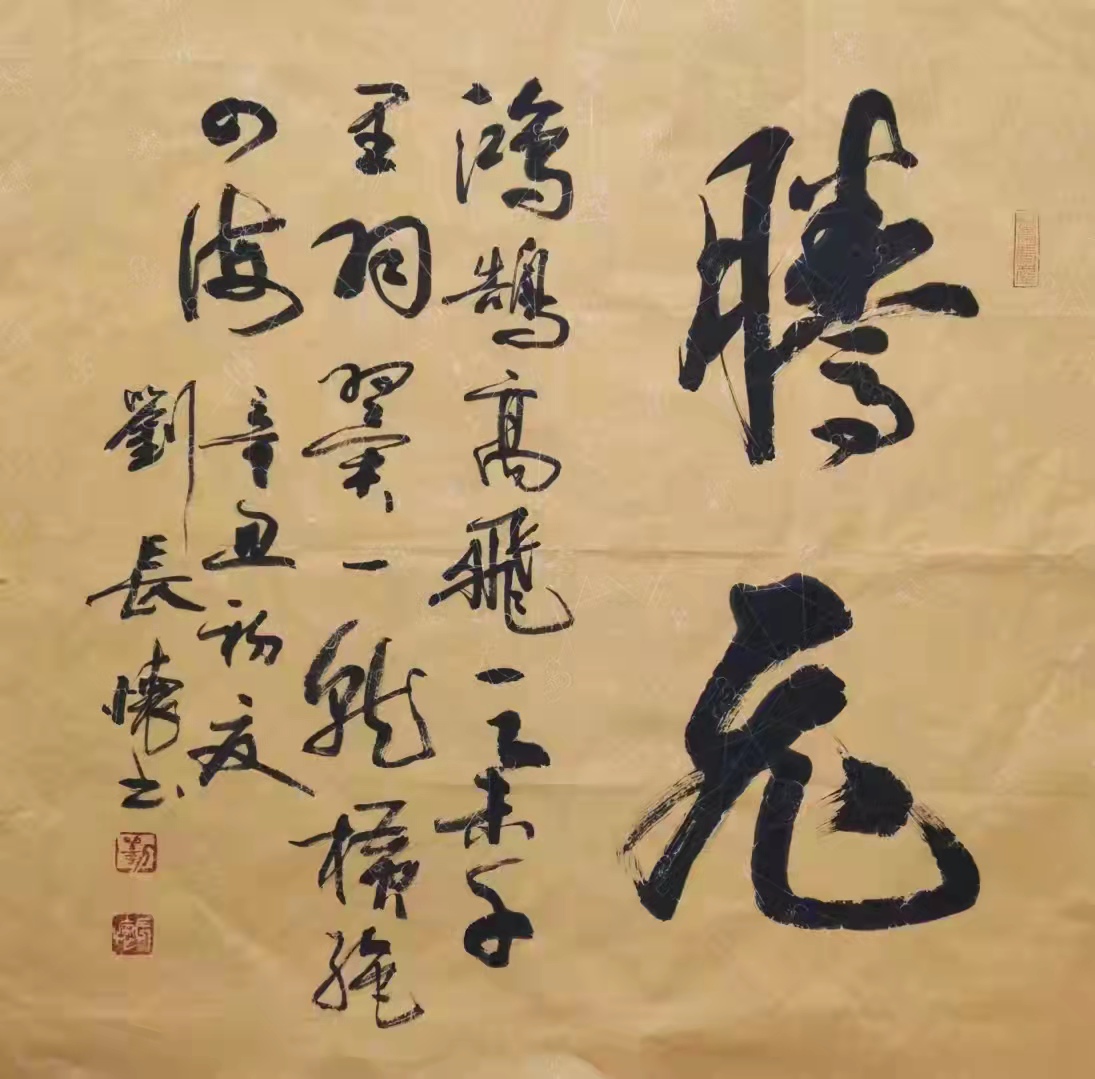 騰飛
鴻鵠高飛一舉千
里羽翼一就橫絕
四海
辛丑初夏
劉長懷书